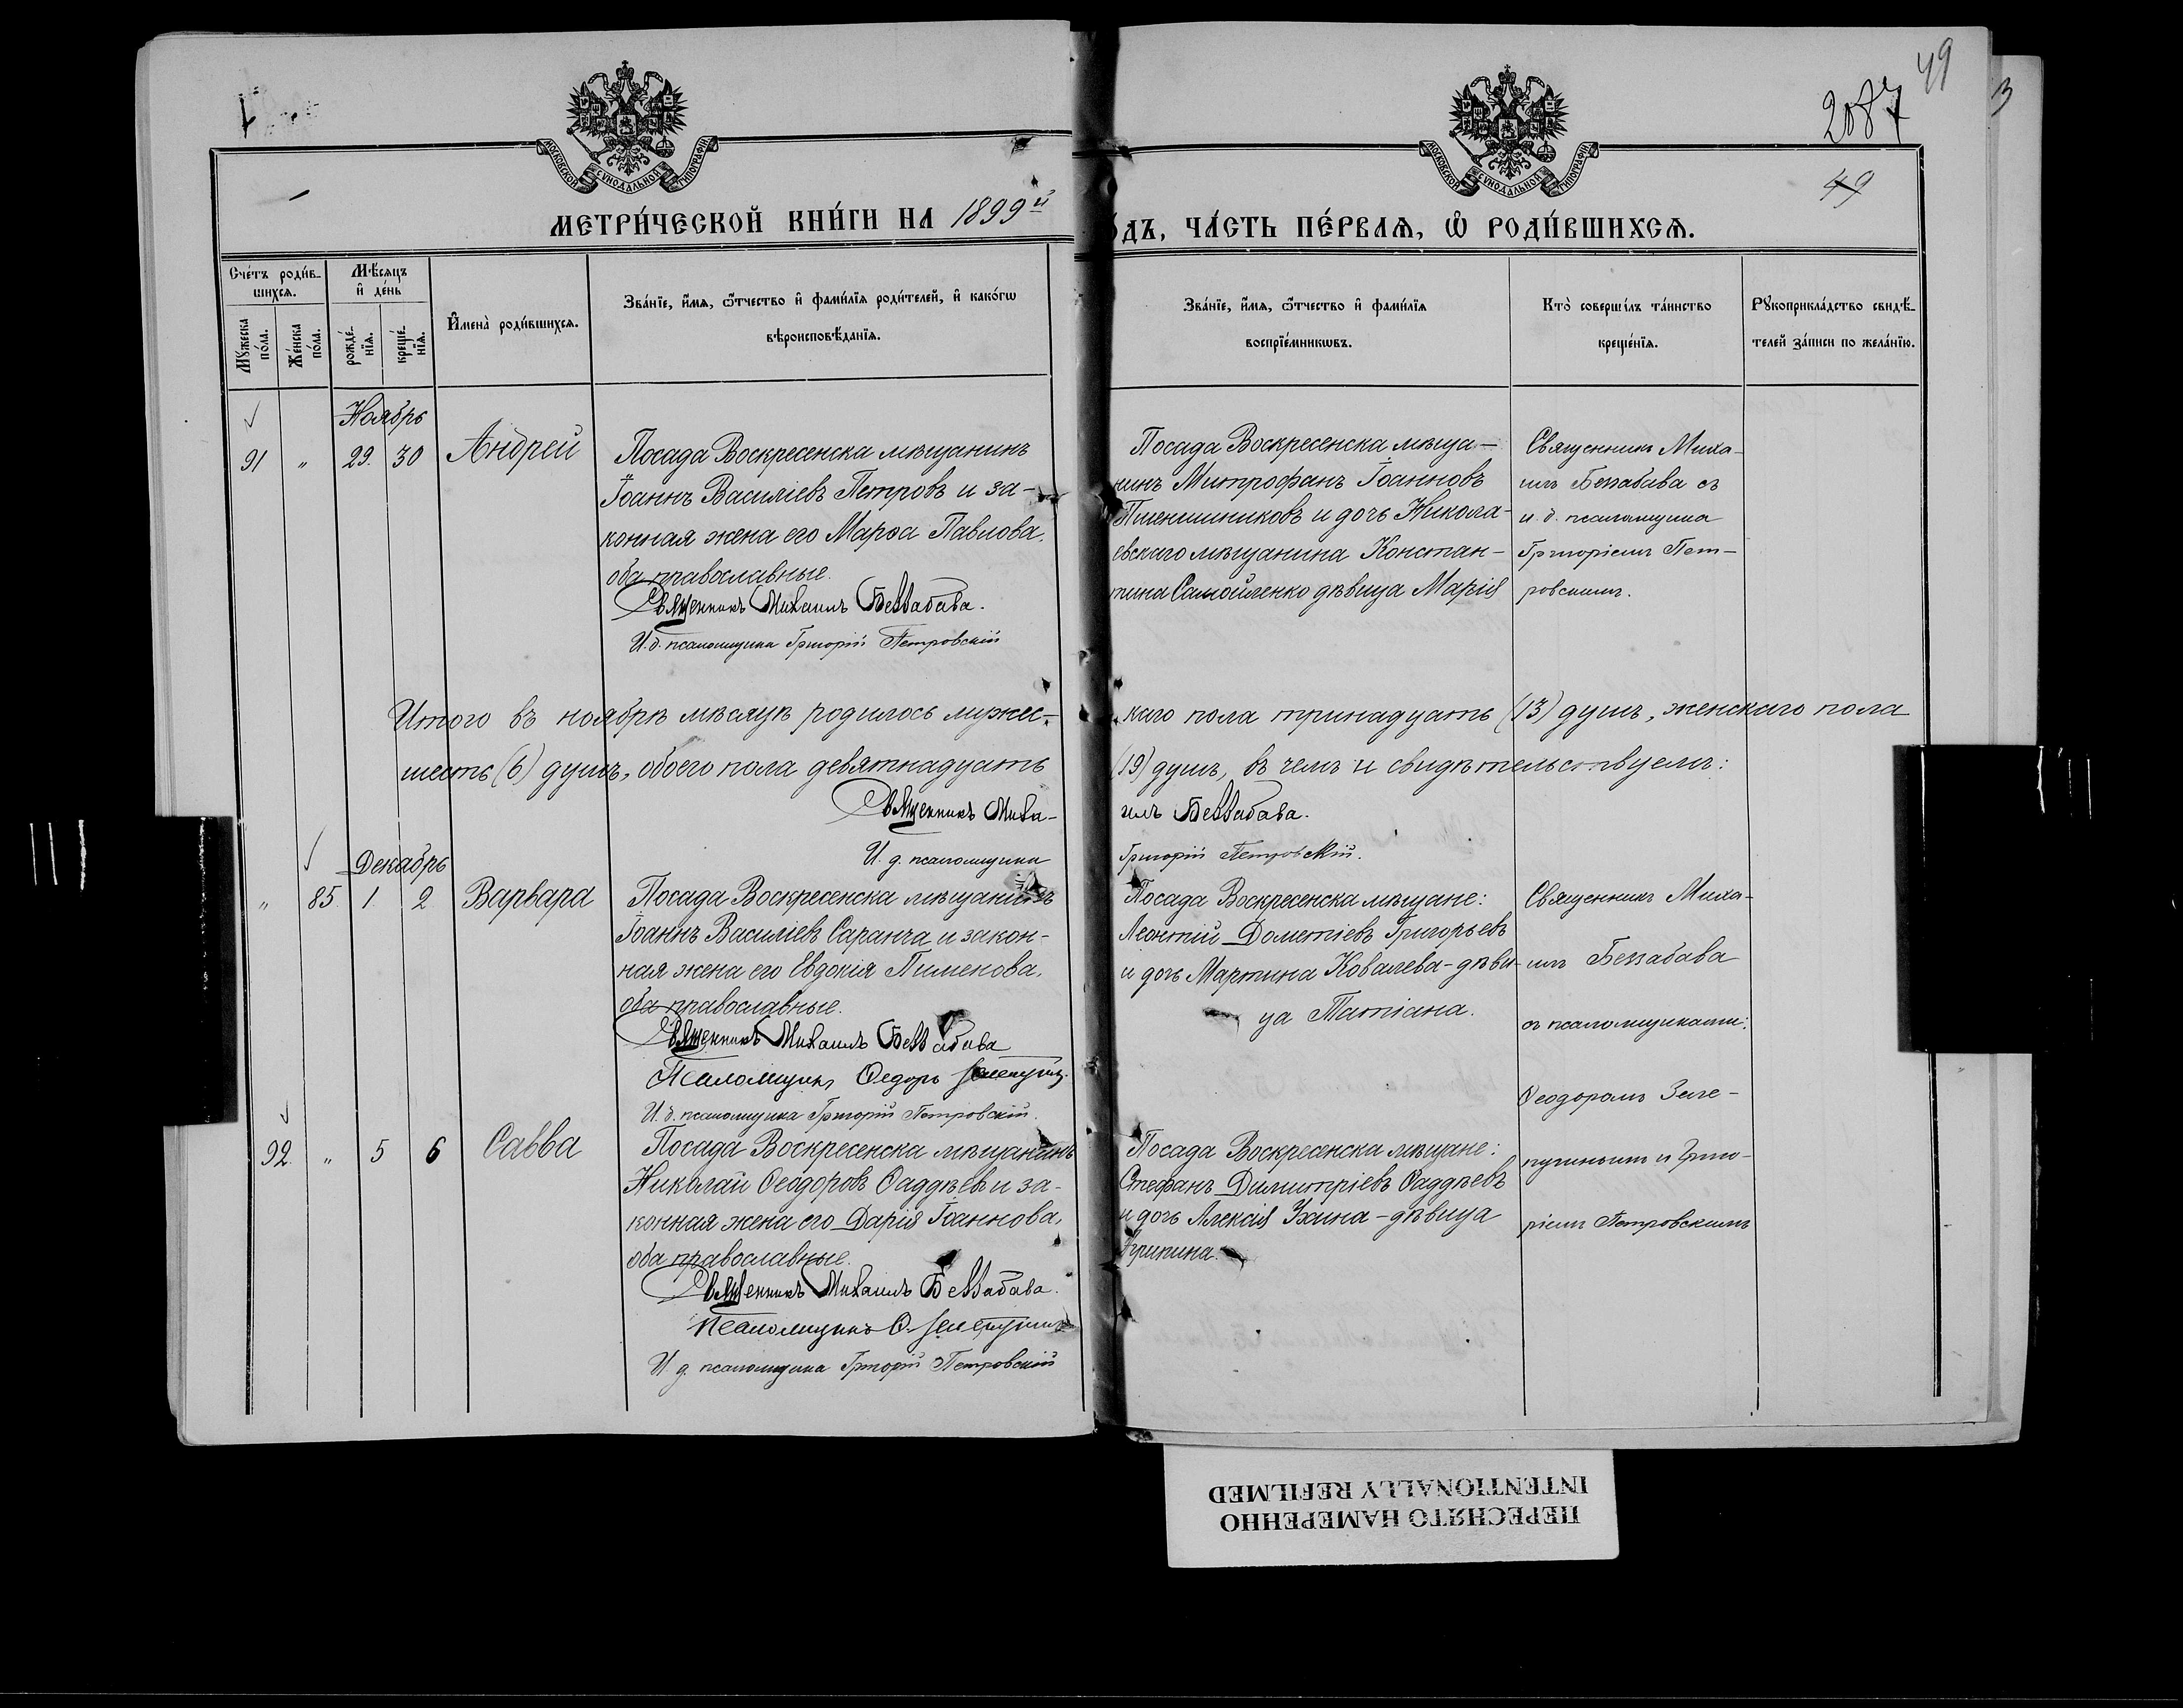 49
2087
3
49
МОСКОВСКОЙ СУНОДАЛЬНОЙ ТИПОГРАФІИ
МОСКОВСКОЙ СУНОДАЛЬНОЙ ТИПОГРАФІИ
МЕТРИ́ЧЕСКОЙ КНИ́ГИ НА 1899й
о́дъ, ЧА́СТЬ ПЕ́РВАѦ, Ѡ҆ РОДИ́ВШИХСѦ.
Сче́тъ роди́в-
шихсѧ.
Му́жеска по́ла.
Же́нска по́ла.
Мѣ́сѧцъ и҆ де́нь
рожде́-нїѧ.
креще́-нїѧ.
И҆мена̀ роди́вшихсѧ.
Зва́нїе, и҆́мѧ, ѻ҆́тчество и҆ фами́лїѧ роди́телей, и҆ како́гѡ
вѣроисповѣ́данїѧ.
Зва́нїе, и҆́мѧ, ѻ҆́тчество и҆ фами́лїѧ
воспрїе́мникѡвъ.
Кто̀ соверши́лъ та́инство
креще́нїѧ.
Рꙋкоприкла́дство свидѣ́-
телей за́писи по жела́нїю.
Ноябрь
91 " 29. 30 Андрей
Посада Воскресенска мѣщанинъ
Іоаннъ Василіевъ Петровъ и за-
конная жена его Марѳа Павлова,
оба православные.
Священникъ Михаилъ Беззабава.
И. д. псаломщика Григорій Петровскій
Посада Воскресенска мѣща-
нинъ Митрофанъ Іоанновъ
Пшенишниковъ и дочь Никола-
евскаго мѣщанина Констан-
тина Самойленко дѣвица Марія
Священникъ Миха-
илъ Беззабава съ
и. д. псаломщика
Григоріемъ Пет-
ровскимъ.
Итого въ ноябрѣ мѣсяцѣ родилось мужес-
каго пола тринадцать (13) душъ, женскаго пола
шесть (6) душъ, обоего пола девятнадцать
(19) душъ, въ чемъ и свидѣтельствуемъ:
Священникъ Миха-
илъ Беззабава.
И. д. псаломщика
Григорій Петровскій.
Декабрь
" 85. 1. 2 Варвара
Посада Воскресенска мѣщанинъ
Іоаннъ Василіевъ Саранча и закон-
ная жена его Евдокія Пименова,
оба православные.
Священникъ Михаилъ Беззабава
Псаломщикъ Ѳедоръ Зелепугинъ.
И. д. псаломщика Григорій Петровскій.
Посада Воскресенска мѣщане:
Леонтій Дометіевъ Григорьевъ
и дочь Мартина Ковалева-дѣви-
ца Татіана.
Священникъ Миха-
илъ Беззабава
съ псаломщиками:
Ѳеодоромъ Зеле-
пугинымъ и Григо-
ріемъ Петровскимъ
92. " 5 6 Савва
Посада Воскресенска мѣщанинъ
Николай Ѳеодоровъ Ѳаддѣевъ и за-
конная жена его Дарія Іоаннова,
оба православные.
Священникъ Михаилъ Беззабава.
Псаломщикъ Ѳ. Зелепугинъ
И. д. псаломщика Григорій Петровскій
Посада Воскресенска мѣщане:
Стефанъ Димитріевъ Ѳаддѣевъ
и дочь Алексія Ухина-дѣвица
Агрипина.
ПЕРЕСНЯТО НАМЕРЕННО
INTENTIONALLY REFILMED